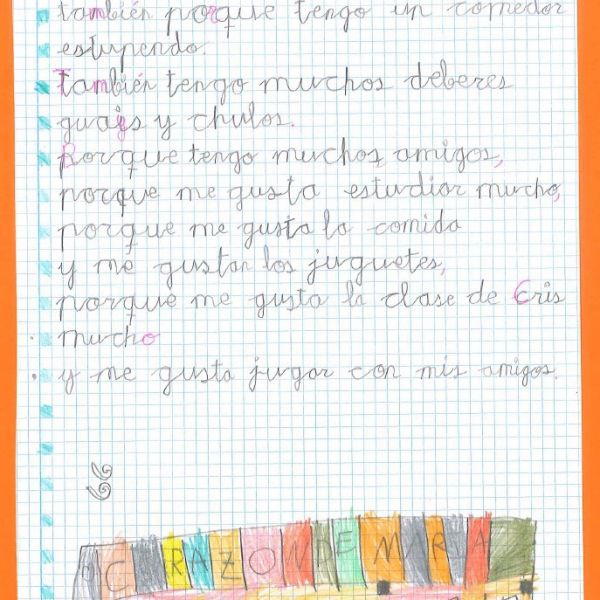 también porque tengo un comedor
estupendo.
También tengo muchos deberes
guays y chulos.
Porque tengo muchos amigos,
porque me gusta estudiar mucho,
porque me gusta la comida
y me gustan los juguetes,
porque me gusta la clase de Cris
mucho
y me gusta jugar con mis amigos.
CRAZON DE MARIA